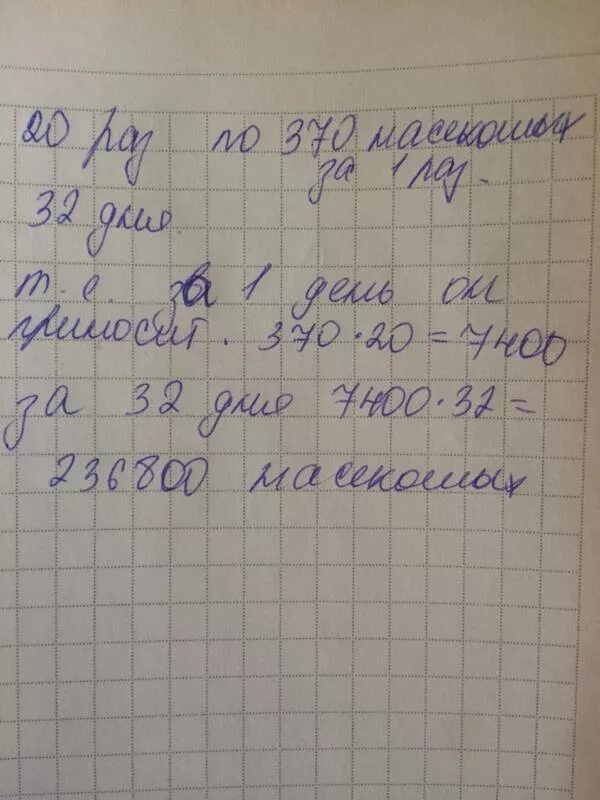 20 раз по 370 насекомых
за 1 раз.
32 дня.
т. е. за 1 день он
приносит. 370·20=7400
за 32 дня 7400·32=
236800 насекомых